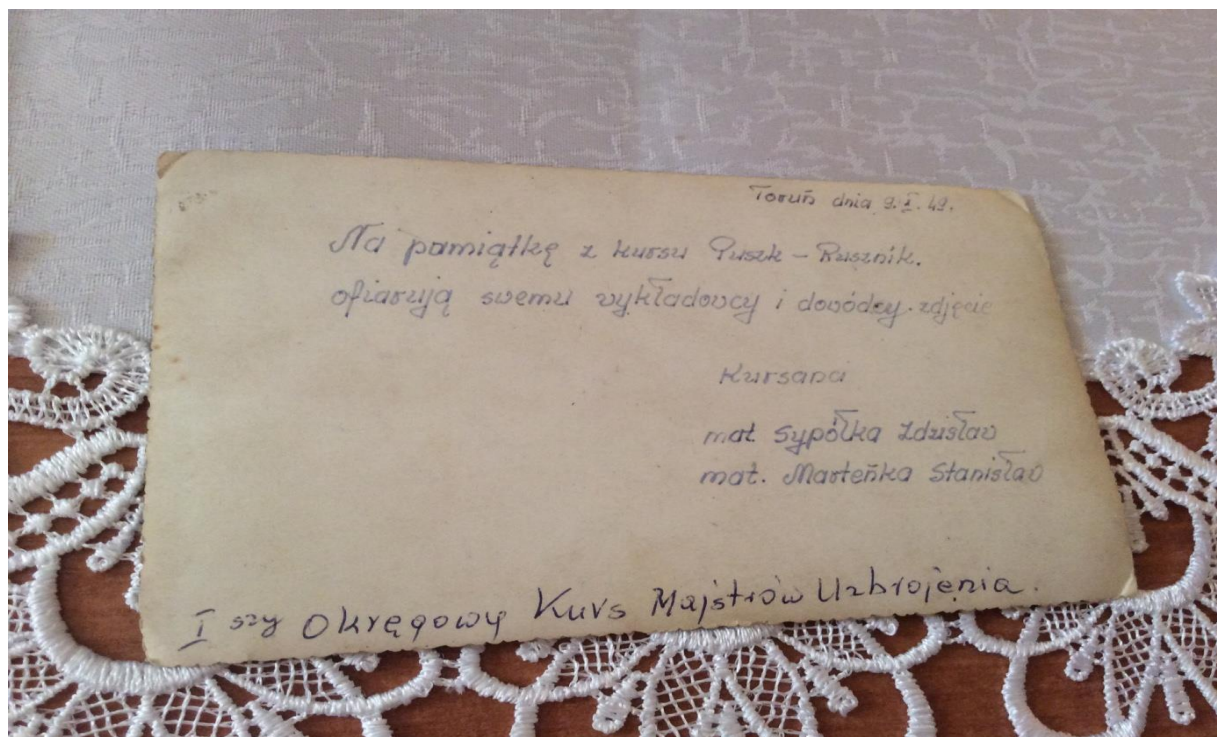 Toruń dnia 9.X.49.
Na pamiątkę z kursu Puszk - Rusznik.
ofiarują swemu wykładowcy i dowódcy zdjęcie
Kursana
mat Sypółka Zdzisław
mat. Marteńka Stanisław
I szy Okręgowy Kurs Majstrów Uzbrojenia.